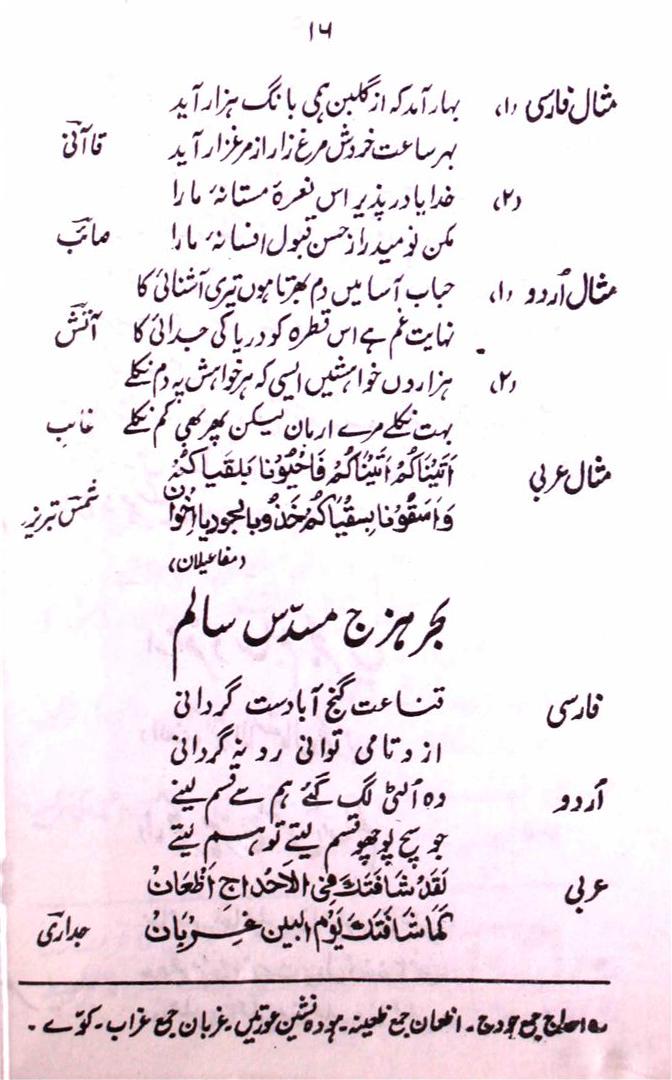 ۱۶
مثال فارسی (۱) بہار آمد کہ از گلبن ہمی بانگ ہزار آید
بہر ساعت خروش مرغ زار از مرغزار آید قاآنی
(۲) خدایا در پذیر اس نعرۂ مستانہ ما را
مکن نومید از حسن قبول افسانہ ما را صائب
مثال اُردو (۱) حباب آسا میں دم بھرتا ہوں تیری آشنائی کا
نہایت غم ہے اس قطرہ کو دریا کی جدائی کا آتش
(۲) ہزاروں خواہشیں ایسی کہ ہر خواہش پہ دم نکلے
بہت نکلے مرے ارمان لیکن پھر بھی کم نکلے غالب
مثال عربی اَتَیْنَاکُمْ اَتَیْنَاکُمْ فَاحْیُوْنَا بلقیاکم
وَاَسْقُوْنَا بِسقْیَاکُمْ خَذُوْ بالجود یا اِخْوَان شمس تبریز
(مفاعیلان)
بحر ہزج مسدّس سالم
فارسی قناعت گنج آبادست گردانی
ازو تامی توانی رو نہ گردانی
اُردو وہ اُلٹی لگ گئے ہم سے قسم لینے
جو سچ پوچھو قسم لیتے تو ہم لیتے
عربی لَقَدْ شَاقَتْكَ فِی الاَحْدَاجِ اَظْعَانُ
کَمَا شَاقَتْكَ یَوْمَ البین غِرْبَانُ جداری
احداج جمع ہودج۔ اظعان جمع ظعینہ۔ ہودہ نشین عورتیں۔ غربان جمع غراب۔ کوّے۔